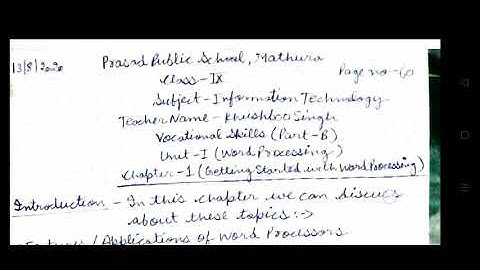 13/8/2020
Prasad Public School, Mathura
Class - IX
Page no - 60
Subject - Information Technology
Teacher Name - Khushboo Singh
Vocational Skills (Part - B)
Unit - I (Word Processing)
Chapter - 1 (Getting Started with Word Processing)
Introduction - In this chapter we can discuss
about these topics :->
Features / Applications of Word Processors